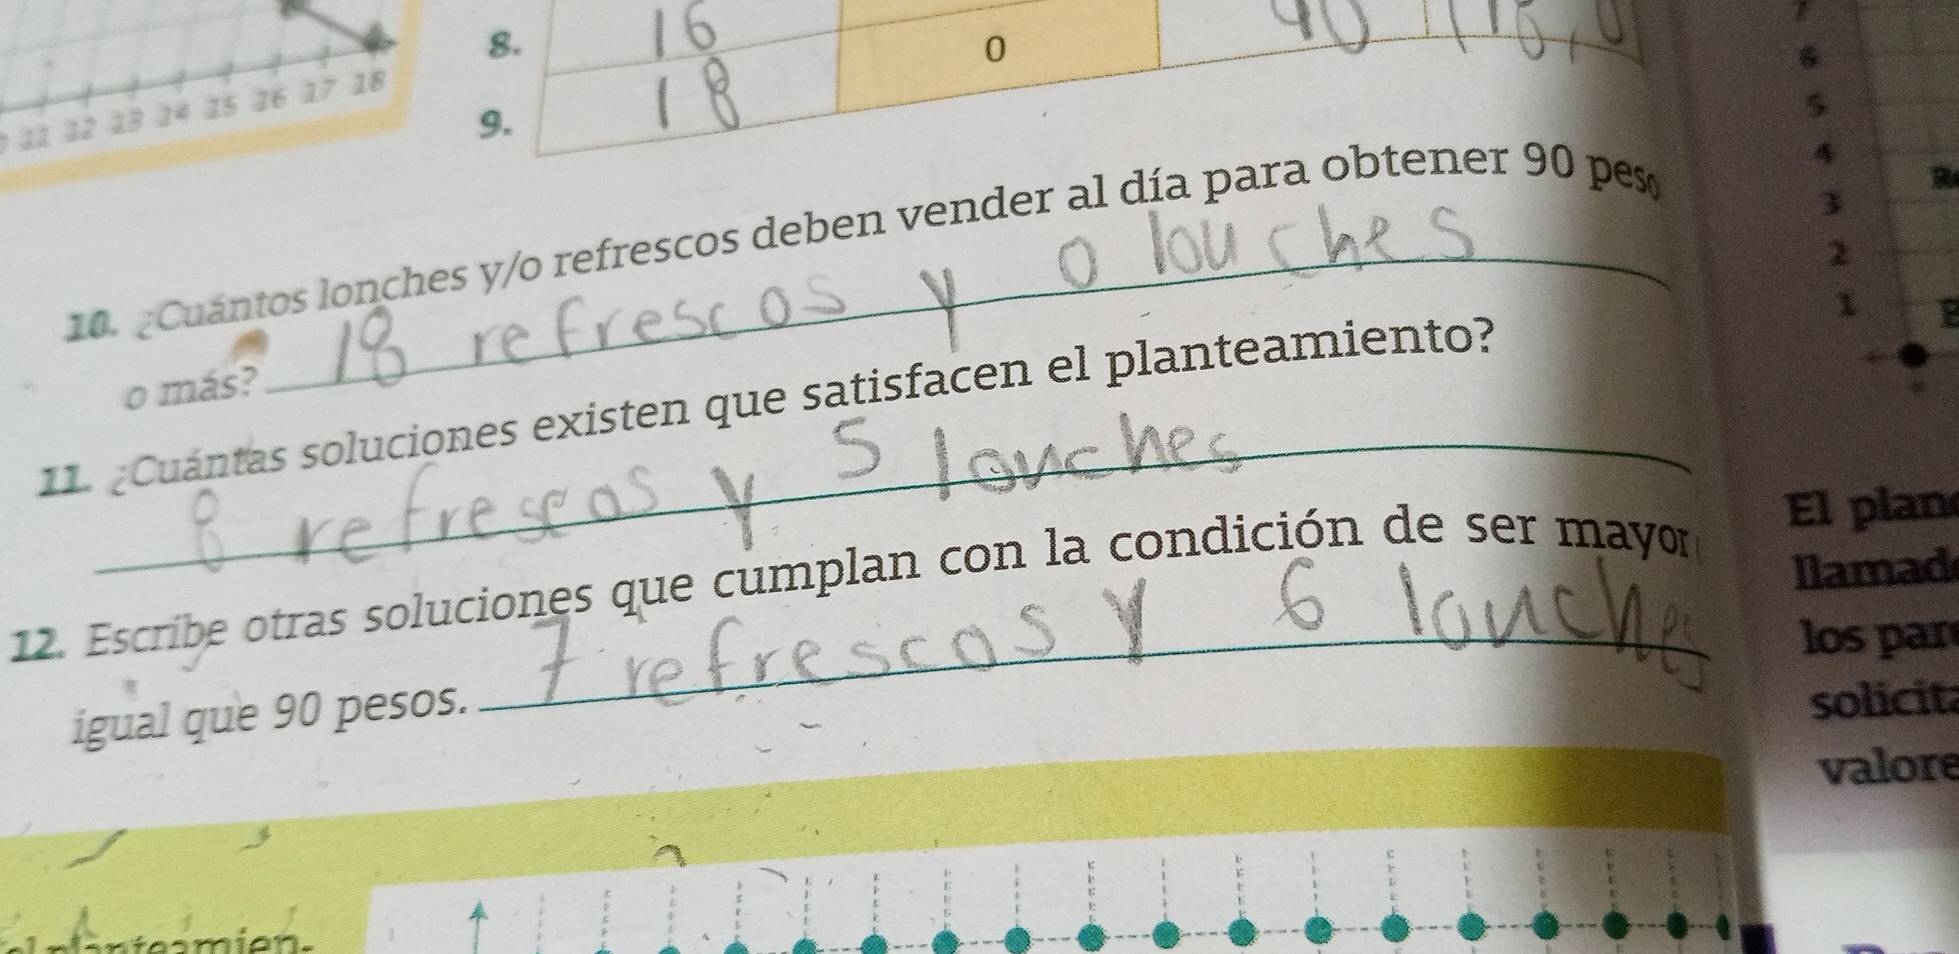 8. 16 0
9. 18
11 12 13 14 15 16 17 18
10. ¿Cuántos lonches y/o refrescos deben vender al día para obtener 90 peso
o más? 18 refrescos y 0 louches
11. ¿Cuántas soluciones existen que satisfacen el planteamiento?
8 refrescos y 5 louches
12. Escribe otras soluciones que cumplan con la condición de ser mayor
igual que 90 pesos. 7 refrescos y 6 louches
6
5
4
3
2
1
El plan
llamad
los par
solicit
valore